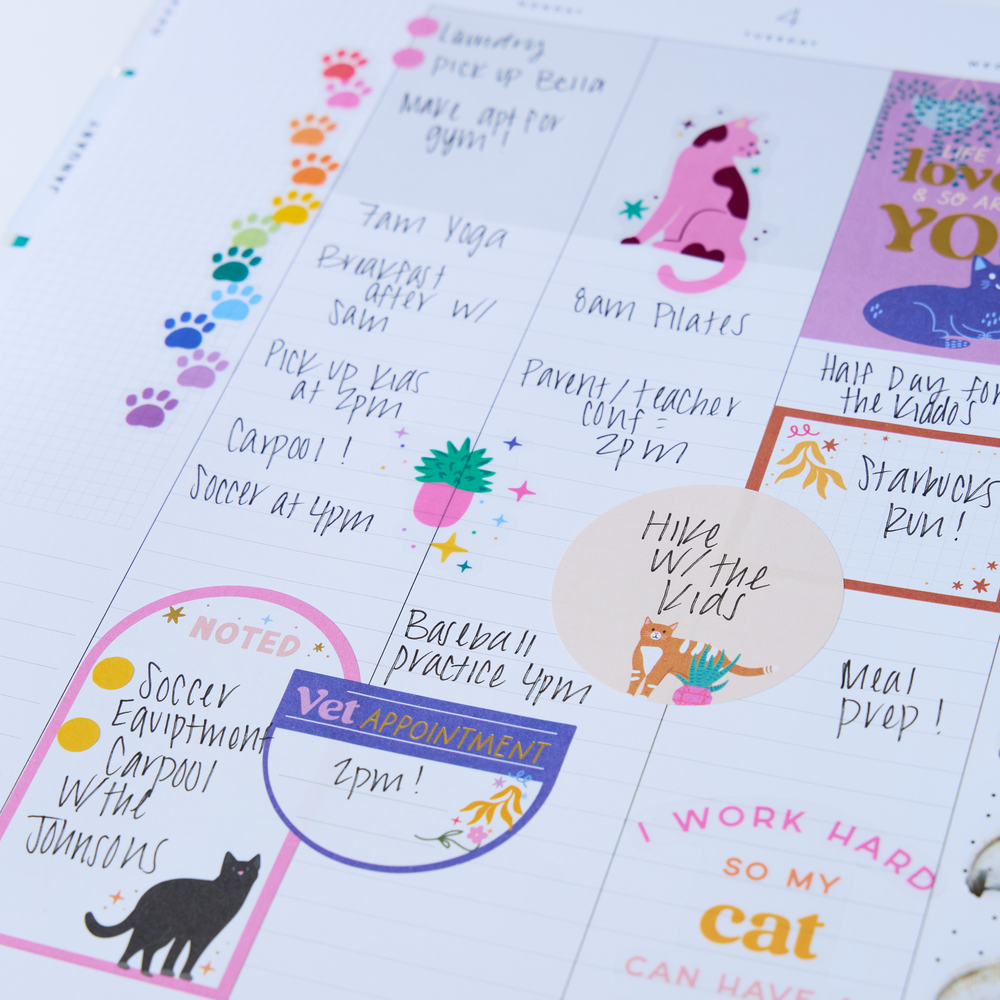 JANUARY
MONDAY
Laundry
Pick up Bella
Make apt for
gym!
7am Yoga
Breakfast
after w/
Sam
Pick up kids
at 2pm
Carpool!
Soccer at 4pm
NOTED
Soccer
Equiptment
Carpool
w/the
Johnsons
4
TUESDAY
8am Pilates
Parent/teacher
conf =
2pm
Hike
w/the
kids
Baseball
practice 4pm
Vet APPOINTMENT
2pm!
LIFE
love
& SO AR
YO
Half Day for
the kiddos
Starbucks
run!
Meal
prep!
I WORK HARD
SO MY
cat
CAN HAVE